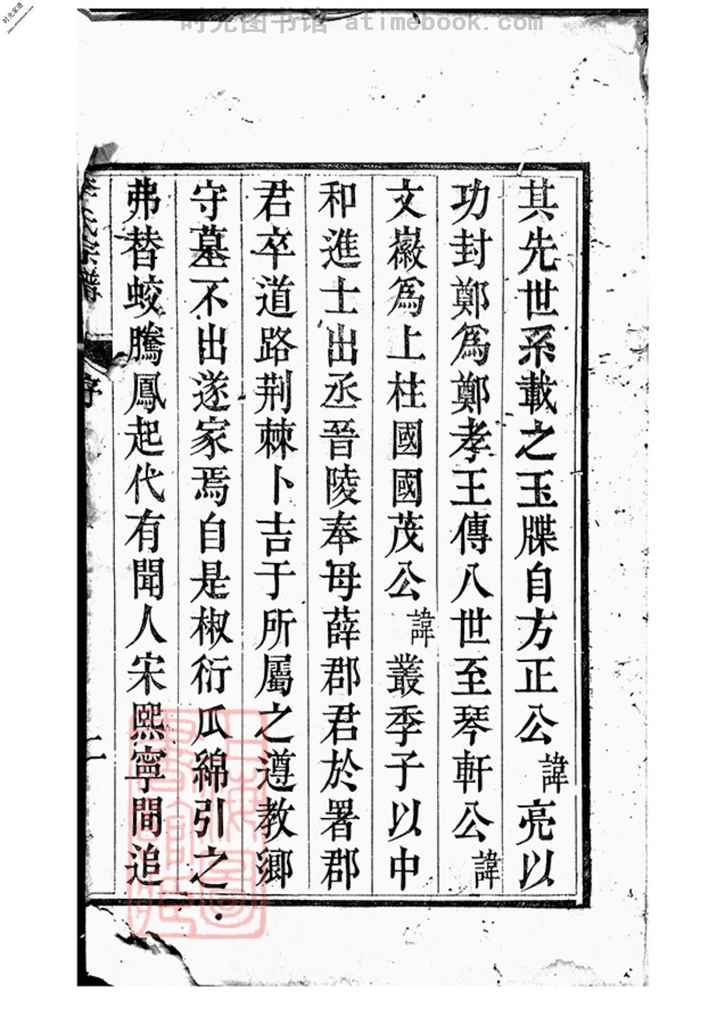 时光图书馆 atimebook.com
时光家谱
其先世系載之玉牒自方正公諱亮以
功封鄭爲鄭孝王傳八世至琴軒公諱
文嶽爲上柱國國茂公諱叢季子以中
和進士出丞晉陵奉母薛郡君於署郡
君卒道路荆棘卜吉于所屬之遵教鄉
守墓不出遂家焉自是椒衍瓜綿引之
弗替蛟騰鳳起代有聞人宋熙寧間追
李氏宗譜
序
二